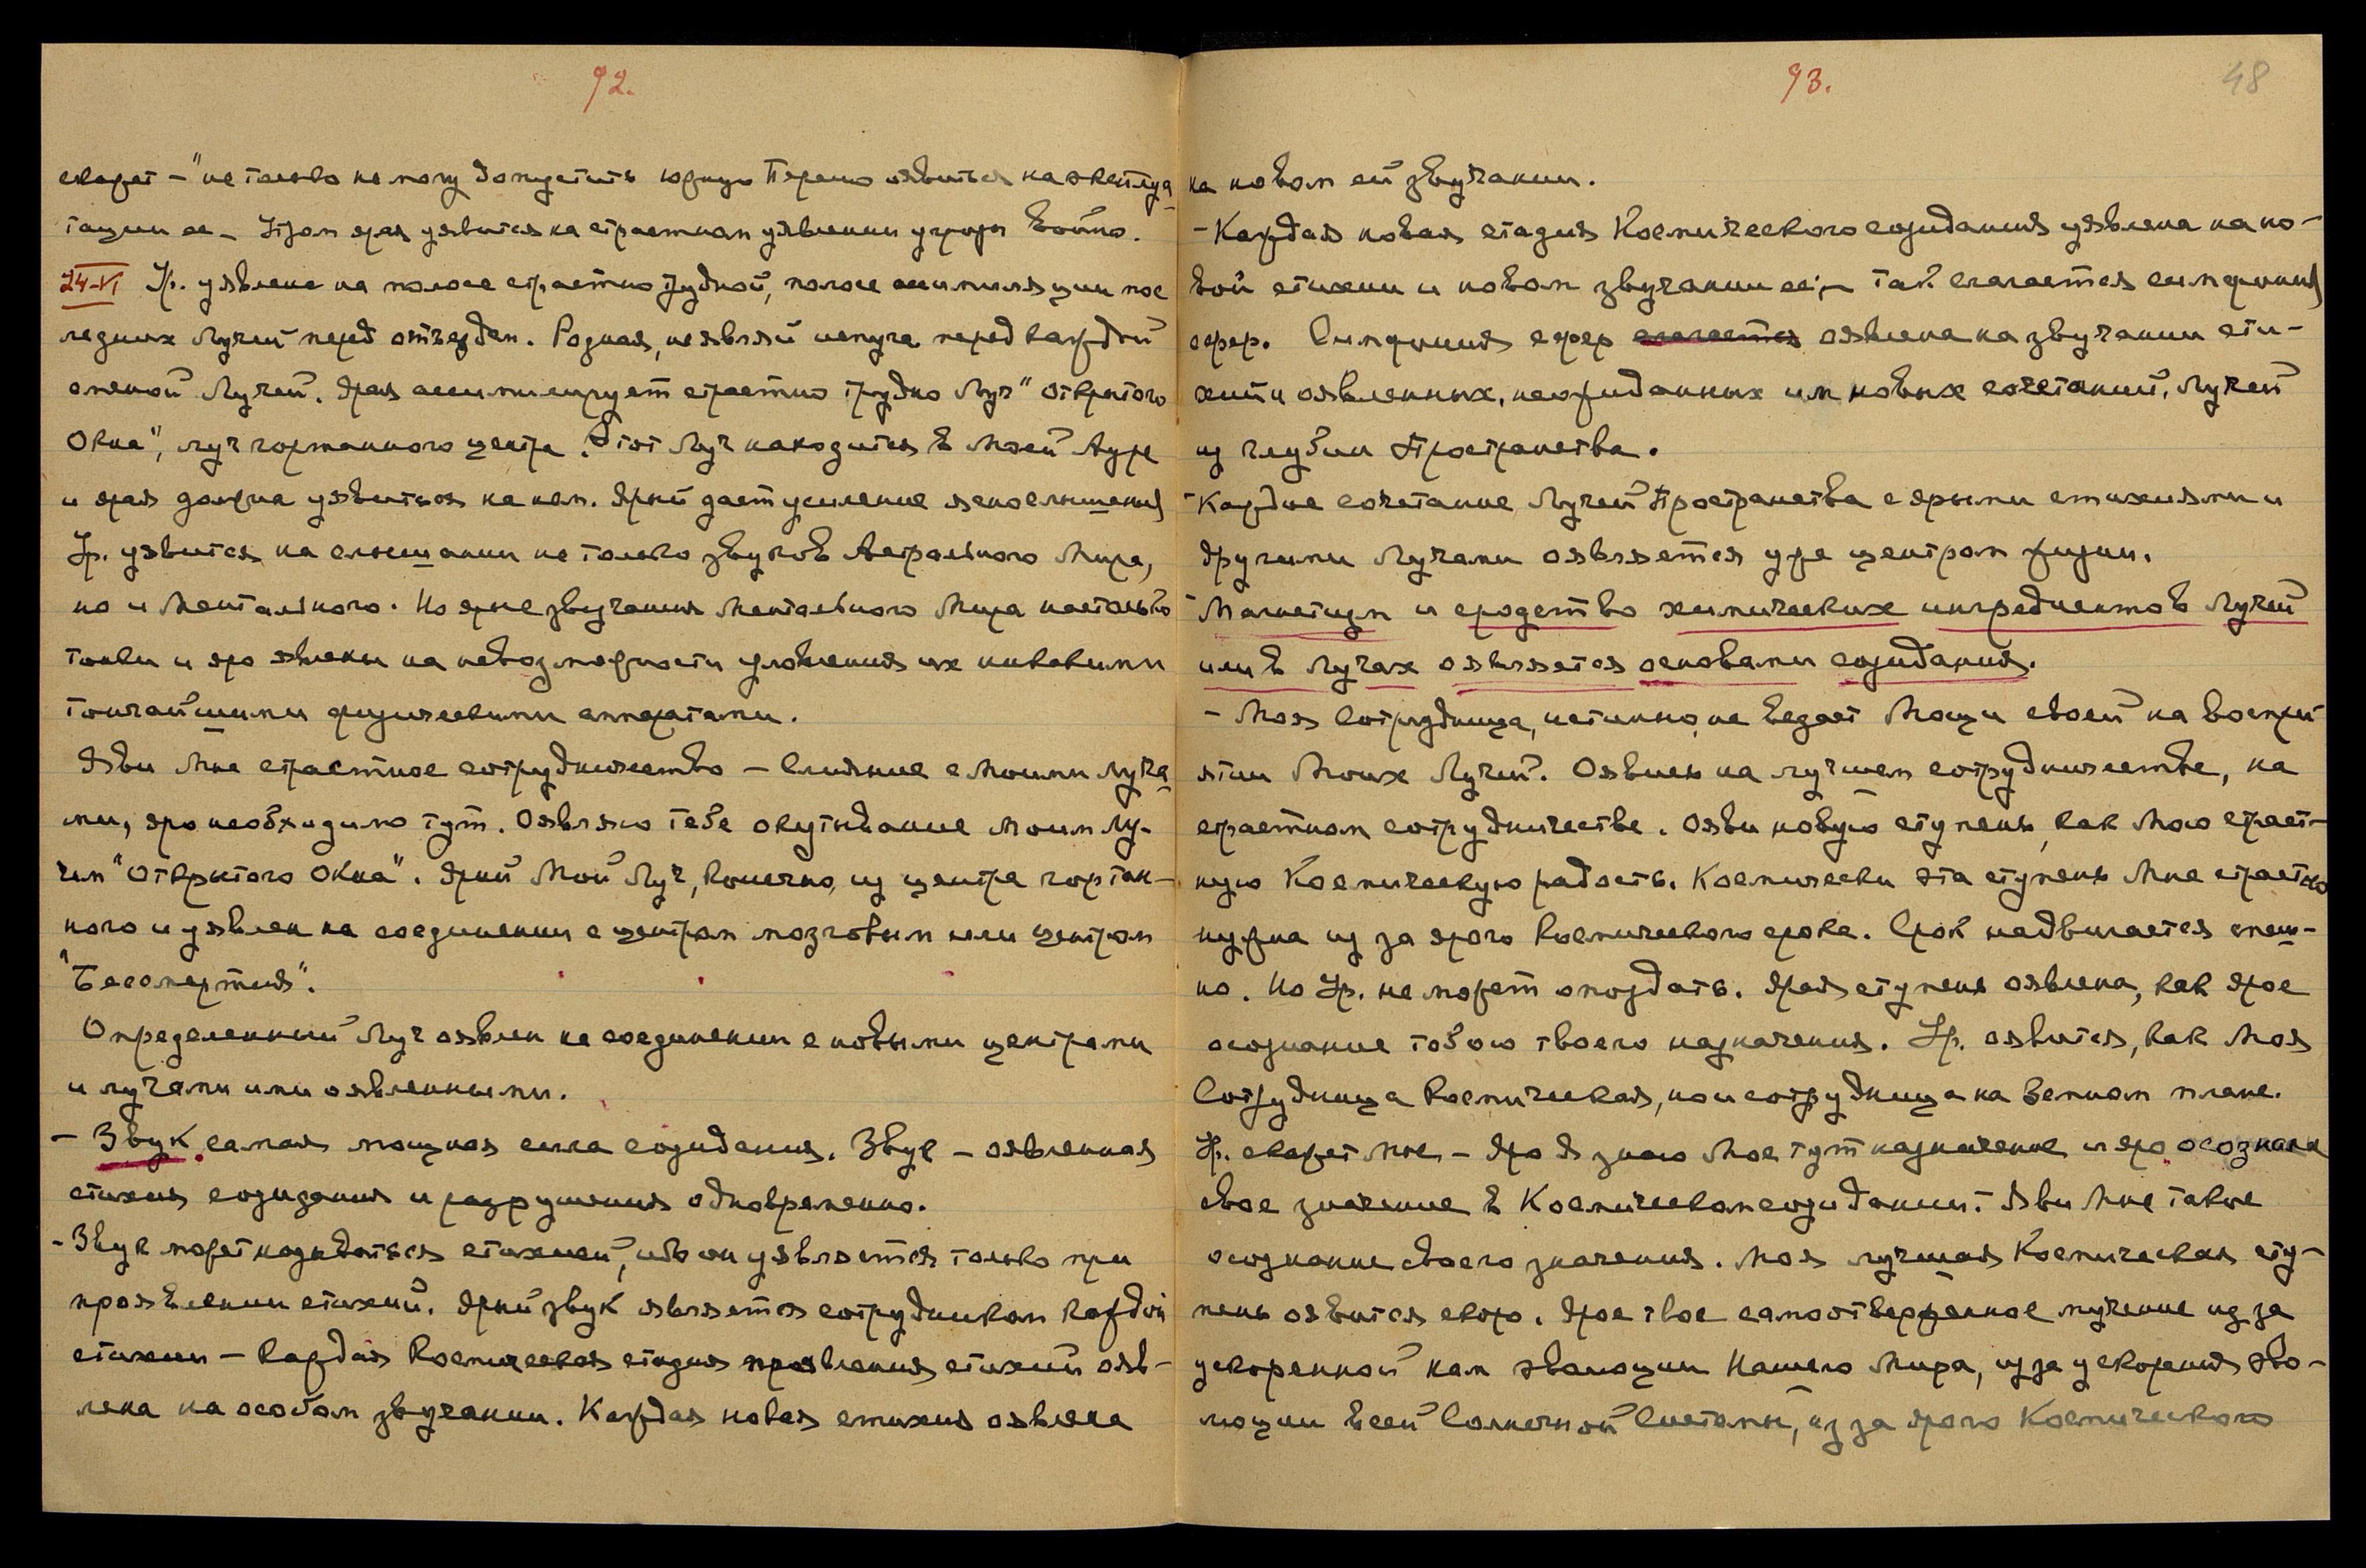 92.
скажет — "не только не могу допустить южную Персию явиться на эксплуа-
тации ее — Изом ярая уявится на страстном уявлении угрозы Войны.
24-VI Ур. уявлена на полосе страстно трудной, полосе ассимиляции пос
ледних Лучей перед отъездом. Родная, не являй испуга перед каждой
сменой Лучей. Ярая ассимилирует страстно трудно Луч "Открытого
Окна", луч гортанного центра. Этот Луч находится в Моей Ауре
и ярая должна уявиться на нем. Ярый дает усиление яснослышания
Ур. уявится на слышании не только звуков Астрального Мира,
но и Ментального. Но ярые звучания Ментального Мира настолько
тонки и яро явлены на невозможности уловления их никакими
тончайшими физическими аппаратами.
Яви Мне страстное сотрудничество — Слияние с Моими луча
ми, яро необходимо тут. Оявляю тебе окутывание Моим Лу-
чем "Открытого Окна". Ярый Мой Луч, конечно, из центра гортан-
ного и уявлен на соединении с центром мозговым или центром
"Бессмертия".
Определенный Луч оявлен на соединении с новыми центрами
и лучами ими оявленными.
— Звук самая мощная сила созидания. Звук — оявленная
стихия созидания и разрушения одновременно.
- Звук может называться стихией, ибо он уявляется только при
проявлении стихий. Ярый звук является сотрудником каждой
стихии — каждая Космическая стадия проявления стихий ояв-
лена на особом звучании. Каждая новая стихия оявлена
93. 48
на новом ей звучании.
- Каждая новая стадия Космического созидания уявлена на но-
вой стихии и новом звучании ее; — так слагается симфония
сфер. Симфония сфер слагается оявлена на звучании сти-
хий и оявленных, неожиданных им новых сочетаний, Лучей
из глубин Пространства.
- Каждое сочетание Лучей Пространства с ярыми стихиями и
другими Лучами оявляется уже центром жизни.
- Магнетизм и сродство химических ингредиентов Лучей
или в Лучах оявляется основами созидания.
- Моя Сотрудница, истинно, не ведает Мощи своей на восприй
ятии Моих Лучей. Оявись на лучшем сотрудничестве, на
страстном сотрудничестве. Ояви новую ступень, как Мою страст-
ную Космическую радость. Космически эта ступень Мне страстно
нужна из за ярого Космического срока. Срок надвигается спеш-
но. Но Ур. не может опоздать. Ярая ступень оявлена, как ярое
осознание тобою твоего назначения. Ур. оявится, как Моя
Сотрудница Космическая, но и сотрудница на Земном плане.
Ур. скажет Мне — Яро Я знаю Мое тут назначение и яро осознала
свое значение в Космическом созидании. — Яви Мне такое
осознание своего значения. Моя лучшая Космическая сту-
пень оявится скоро. Ярое твое самоотверженное мучение из за
ускоренной нам эволюции Нашего Мира, из за ускорения эво-
люции всей Солнечной Системы, из за ярого Космического